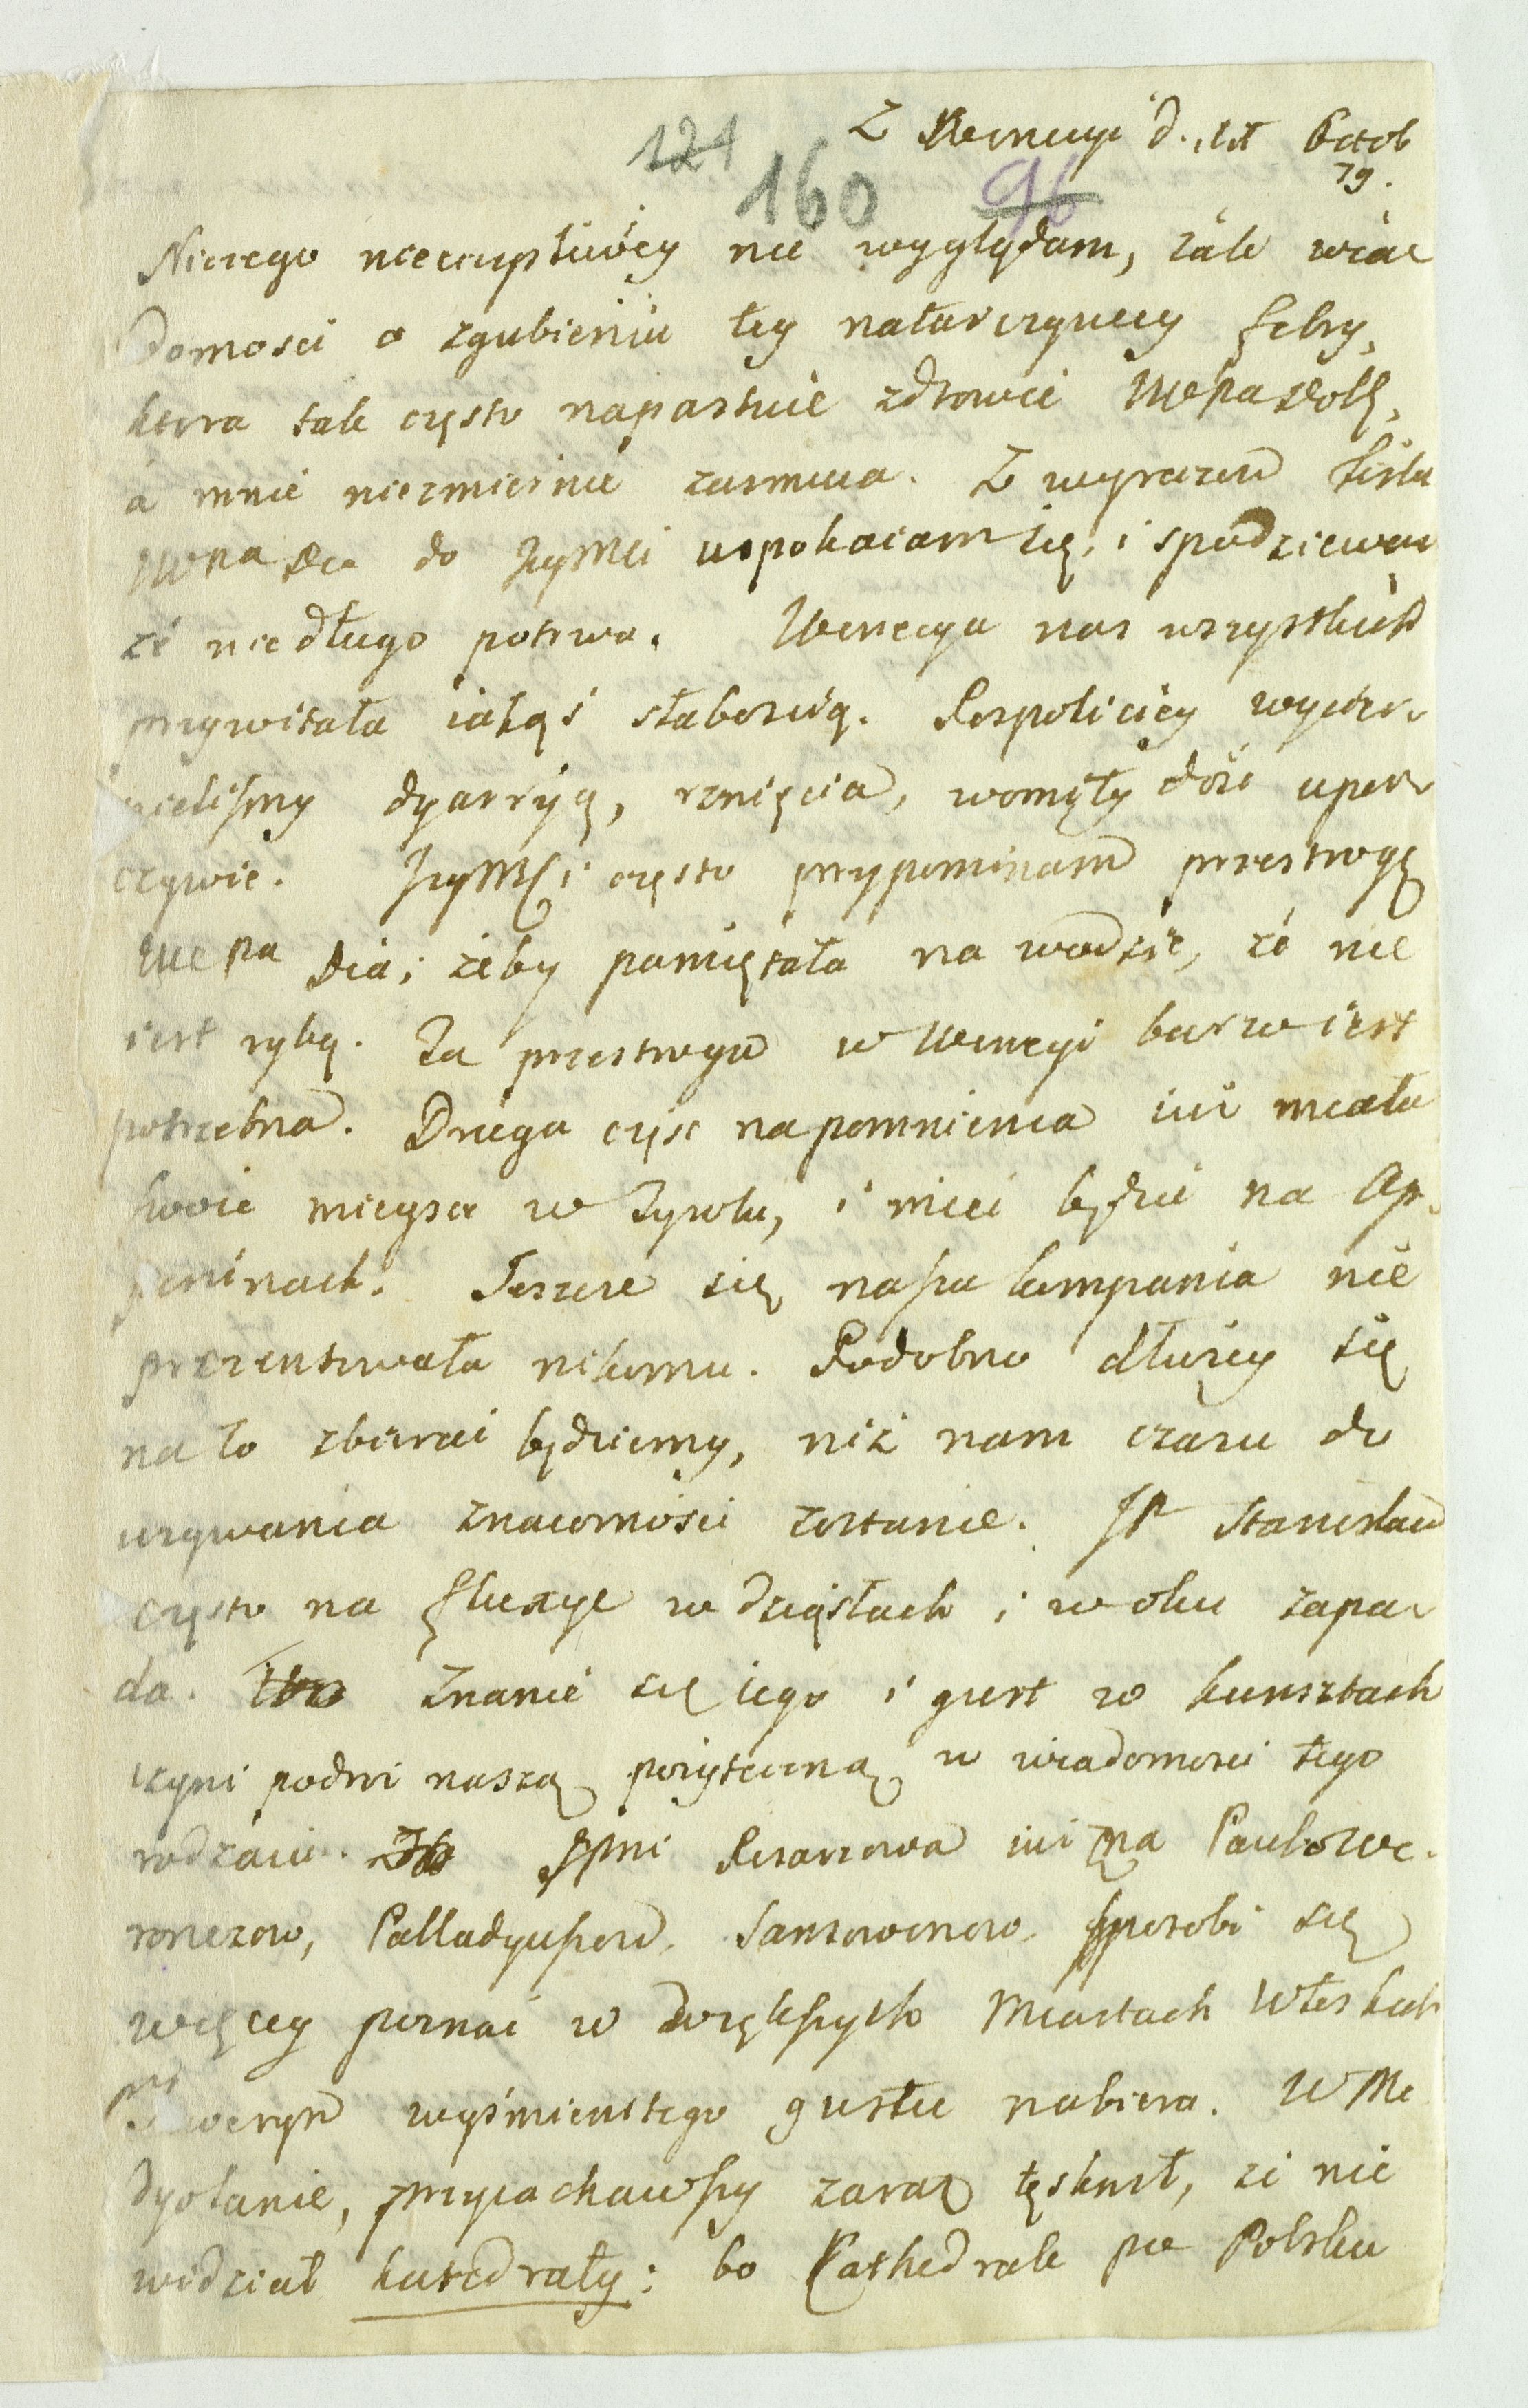 Z Wenecyi d. 1st Octob
79.
121 160 96
Niczego niecierpliwiey nie wyglądam, iak wia
domosci o zgubieniu tey natarczywey febry,
ktora tak często napastuie zdrowie WMPaDob,
a mnie niezmiernie zasmuca. Z wyrazow listu
WMPa Da do JeyMci uspokaiam się, i spodziewam
że niedługo potrwa. Wenecya nas wszystkich
przywitała iakąś słabością. Pospoliciey wycier-
pieliśmy dyarryą, rznięcia, womity dość upor-
czywie. JeyMci często przypominam przestrogę
WMPa Dia; żeby pamiętała na wodzie, że nie
iest rybą. Ta przestroga w Wenecyi barzo iest
potrzebna. Druga częsc napomnienia iuż miała
swoie mieysce w Tyrolu, i mieć będzie na Ap-
peninach. Jeszcze się nasza kompania nie
prezentowała nikomu. Podobno dłużey się
na to zbierać będziemy, niż nam czasu do
używania znaiomości zostanie. JP Stanisław
często na fluxye w dziąsłach i w oku zapa-
da. Znanie się iego i gust w kunsztach
czyni podroż naszą pożyteczną w wiadomości tego
rodzaiu. JPni iuż zna Paulo Ve-
ronezow, Palladyuszow, Sansowinow, sposobi się
więcey poznać w większych Miastach Włoskich
weryn wyśmienitego gustu nabiera. W Me
dyolanie, przyiachawszy zaraz tęsknił, że nie
widział katedrały: bo Cathedrale po Polsku